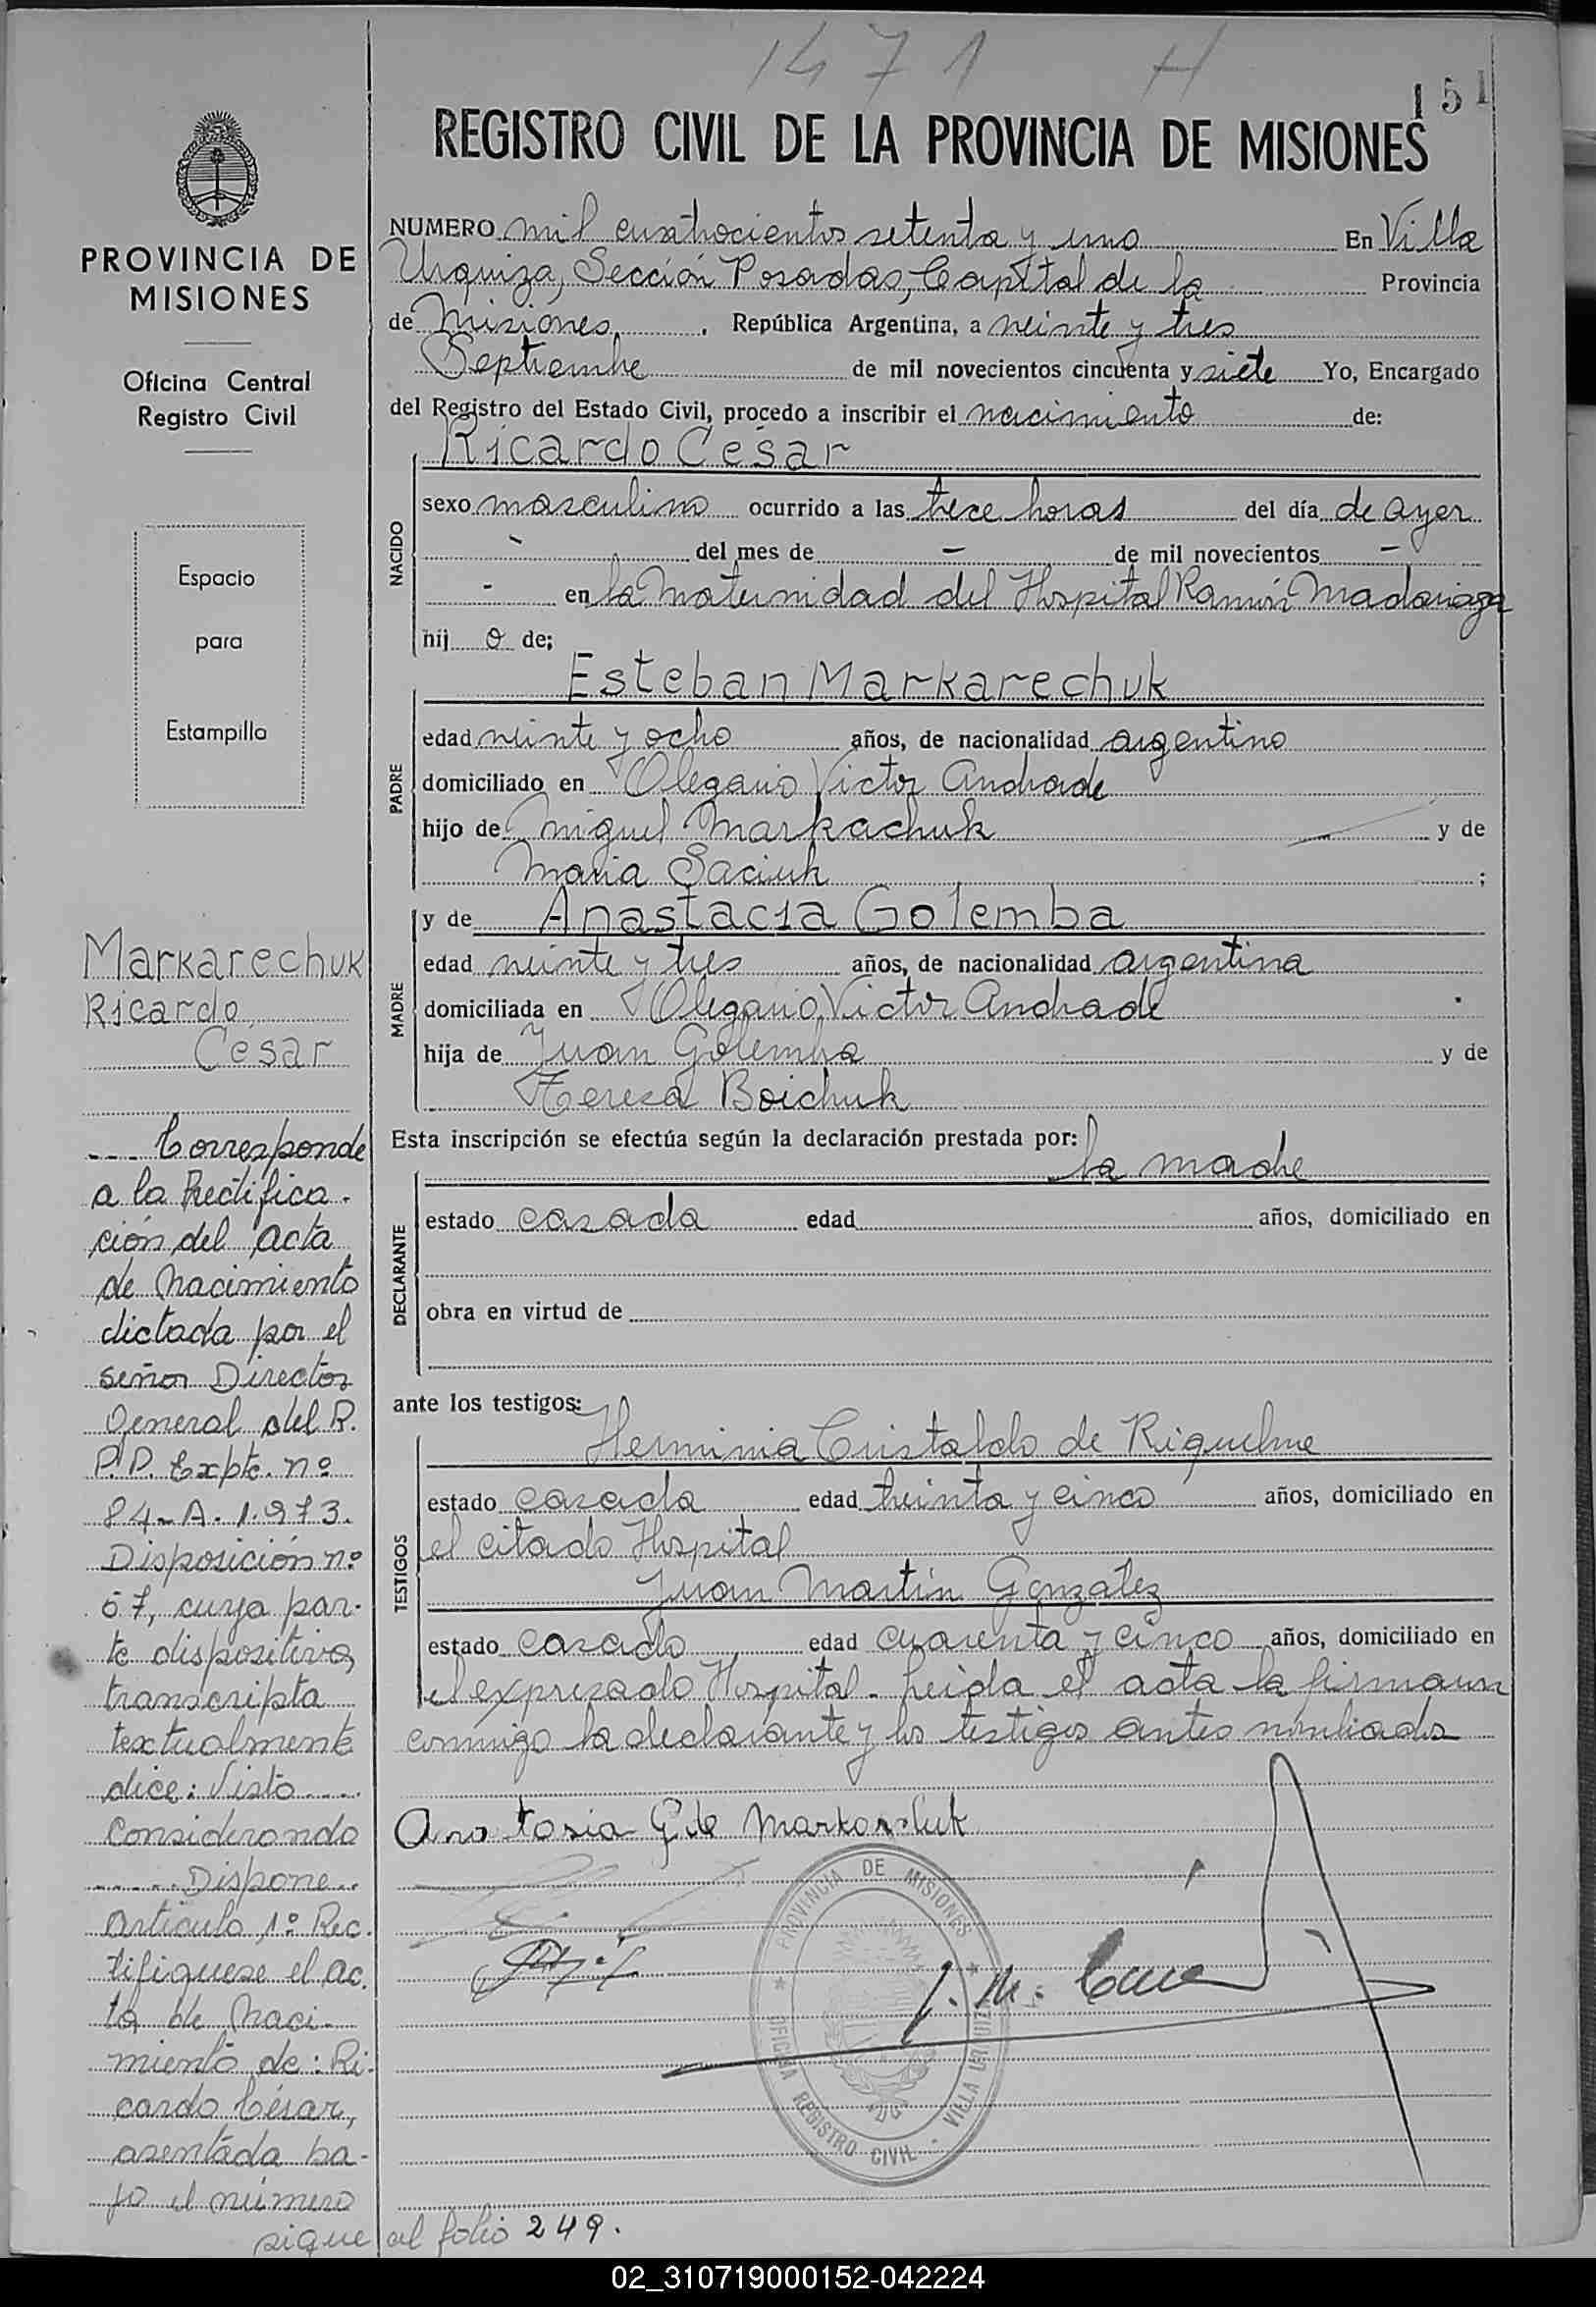 1471 H
151
REGISTRO CIVIL DE LA PROVINCIA DE MISIONES
PROVINCIA DE
MISIONES
Oficina Central
Registro Civil
Espacio
para
Estampilla
NUMERO mil cuatrocientos setenta y uno En Villa
Urquiza, Sección Posadas, Capital de la Provincia
de Misiones, República Argentina, a veinte y tres
Septiembre de mil novecientos cincuenta y siete Yo, Encargado
del Registro del Estado Civil, procedo a inscribir el nacimiento de:
NACIDO
Ricardo César
sexo masculino ocurrido a las trece horas del día de ayer
- del mes de - de mil novecientos -
- en la Maternidad del Hospital Ramón Madariaga
hij o de;
PADRE
Esteban Markarechuk
edad veinte y ocho años, de nacionalidad argentino
domiciliado en Olegario Victor Andrade
hijo de Miguel Markachuk y de
Maria Saciuk ;
MADRE
y de Anastacia Golemba
edad veinte y tres años, de nacionalidad argentina
domiciliada en Olegario Victor Andrade
hija de Juan Golemba y de
Teresa Boichuk
Esta inscripción se efectúa según la declaración prestada por:
la madre
DECLARANTE
estado casada edad años, domiciliado en
obra en virtud de
ante los testigos:
TESTIGOS
Herminia Cristaldo de Riquelme
estado casada edad treinta y cinco años, domiciliado en
el citado Hospital
Juan Martin Gonzalez
estado casado edad cuarenta y cinco años, domiciliado en
el expresado Hospital. Leida el acta la firmaron
conmigo la declarante y los testigos antes nombrados
PROVINCIA DE MISIONES
OFICINA REGISTRO CIVIL - VILLA URQUIZA
Markarechuk
Ricardo
Cesar
--- Corresponde
a la Rectifica-
ción del acta
de Nacimiento
dictada por el
señor Director
General del R.
P.P. Expte. nº
84-A-1.973.
Disposición nº
67, cuya par-
te dispositiva
transcripta
textualmente
dice: Visto....
Considerando
....... Dispone..
Articulo 1º Rec.
tifiquese el ac.
ta de Naci-
miento de: Ri-
cardo César,
asentada ba-
jo el número
sigue al folio 249.
02_310719000152-042224